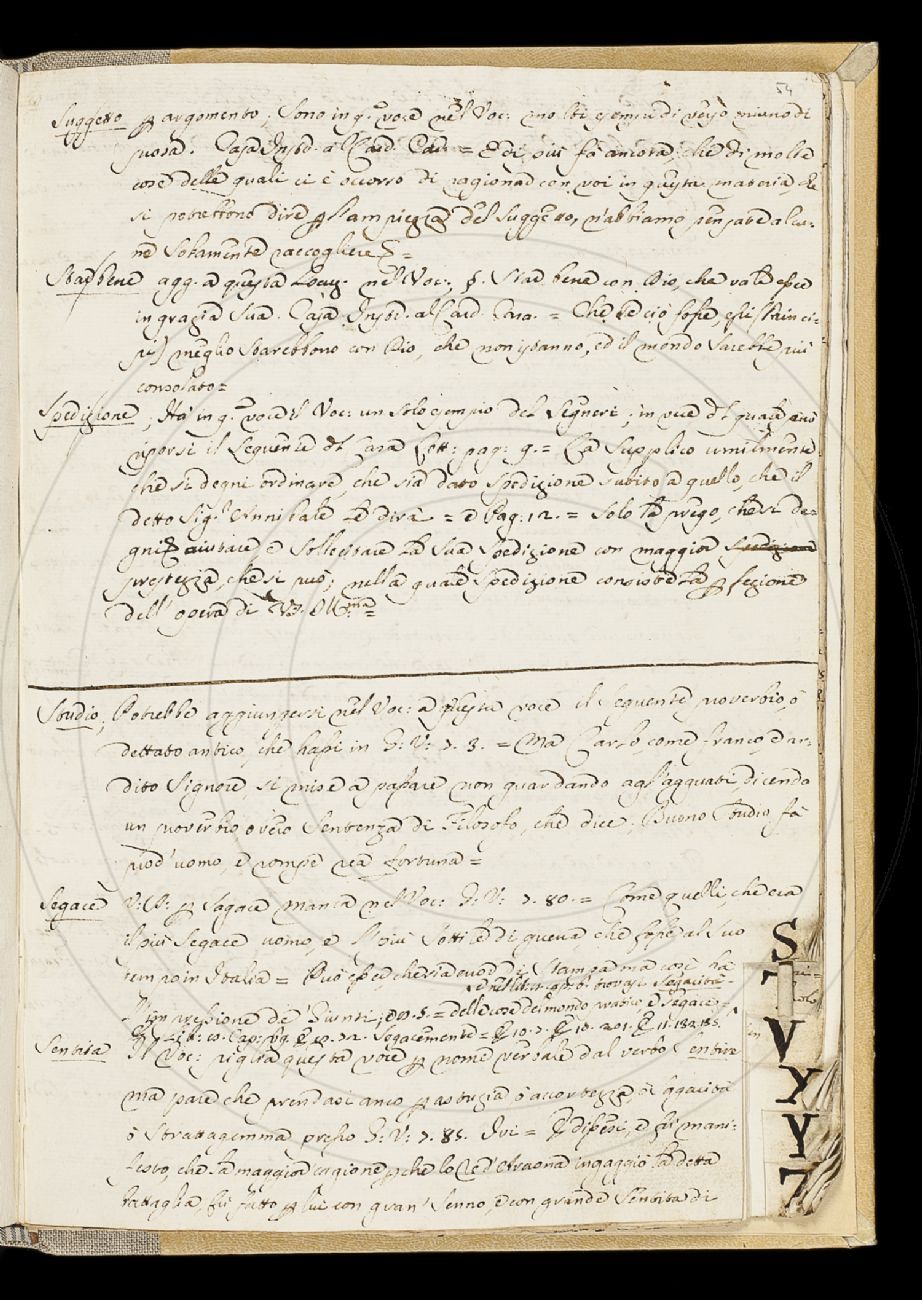 54
Suggetto p argomento; Sono in q.a voce nel Voc: molti esempi di verso niuno di
prosa. Casa Instr. al Card. Car. = E di più fà ancora, che di molte
cose delle quali ci è occorso di ragionar con voi in questa materia, che
si potessono dire p l'ampiezza del Suggetto, n'abbiamo pensate alcu-
ne solamente raccogliere =
Star bene agg. a questa Locuz. nel Voc: §. Star bene con Dio, che vale esser
in grazia Sua. Casa Instr. al Card. Cara. = Che se ciò fosse, essi (Princi-
pi) meglio starebbono con Dio, che non istanno, ed il mondo sarebbe più
consolato =
Spedizione; Ha in q.a voce il Voc: un solo esempio del Segneri; in vece del quale può
riporsi il seguente del Caro Lett: pag: 9. = La supplico umilmente
che si degni ordinare, che sia dato spedizione subito a quello, che il
detto Sig.r Annibale le dirà = e Pag: 12. = Solo la prego, che si de-
gni aiutare e sollecitare la sua spedizione con maggior
prestezza, che si può; nella quale spedizione consiste la pfezione
dell'opera di V.S. Ill.ma =
Studio; Potrebbe aggiungersi nel Voc: a questa voce il seguente proverbio, o
dettato antico, che hassi in G: V: 7. 3. = Ma Carlo come franco, e ar-
dito Signore, si mise a passare non guardando agl'agguati, dicendo
un proverbio overo Sentenza di Filosofo, che dice: Buono studio fà
prod'uomo, e rompe rea fortuna =
Segace V: A: p Sagace manca nel Voc: G: V: 7. 80. = Come quelli, che era
il più segace uomo, e 'l più sottile di guerra, che fosse al suo
tempo in Italia = Può essere, che sia error di Stampa ma così ha
l'impressione de' Giunti; = delle cose del mondo pratico, e segace =
Segacemente =
Sentita Voc: piglia questa voce p nome verbale dal verbo sentire
ma pare che prendasi anco p astuzia ò accortezza ò sagacità
ò Strattagemma presso G: V: 7. 85. Ivi = E dissesi, e fù mani-
festo, che la maggior cagione pche lo Re d'Araona ingaggiò la detta
battaglia, fù fatto p lui con gran' Senno, e con grande Sentita di
S
T
V
Y
Y
Z